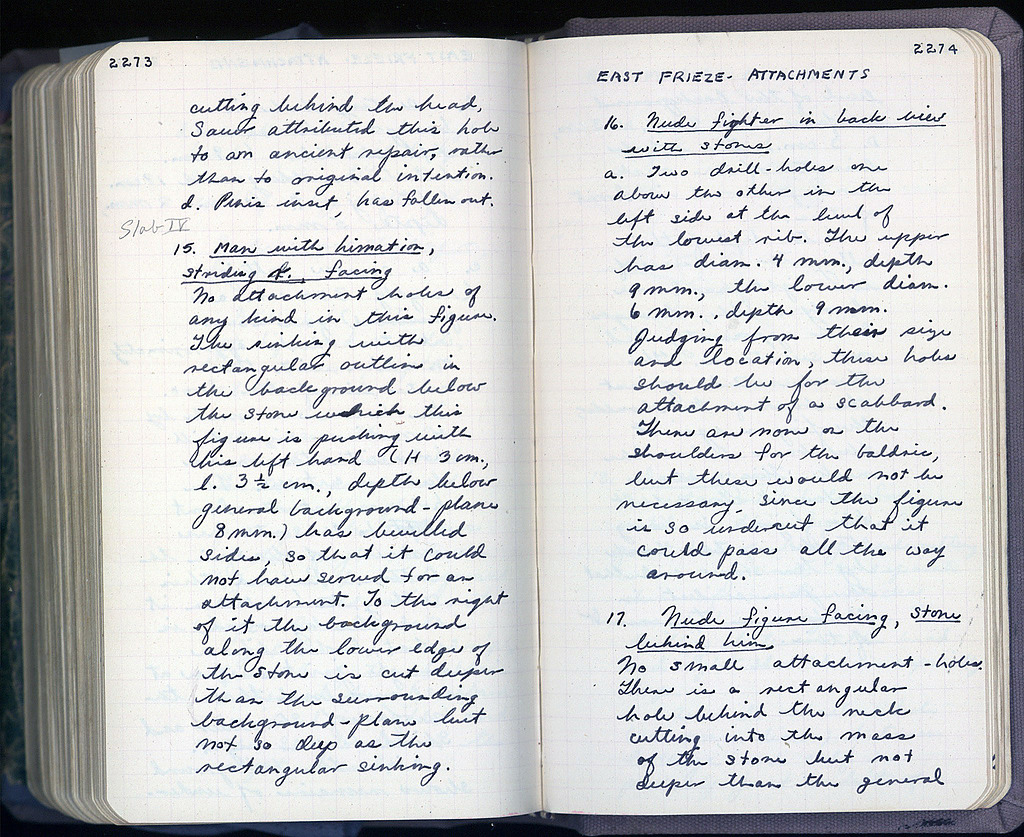 2273
cutting behind the head,
Sauer attributed this hole
to an ancient repair, rather
than to original intention.
d. Penis inset, has fallen out.
Slab IV
15. Man with himation,
striding R., facing
No attachment holes of
any kind in this figure.
The sinking with
rectangular outline in
the background below
the stone which this
figure is pushing with
his left hand (H 3 cm.,
l. 3 ½ cm., depth below
general background-plane
8 mm.) has bevelled
sides, so that it could
not have served for an
attachment. To the right
of it the background
along the lower edge of
the stone is cut deeper
than the surrounding
background-plane but
not so deep as the
rectangular sinking.
2274
EAST FRIEZE - ATTACHMENTS
16. Nude fighter in back view
with stones
a. Two drill-holes one
above the other in the
left side at the level of
the lowest rib. The upper
has diam. 4 mm., depth
9 mm., the lower diam.
6 mm., depth 9 mm.
Judging from their size
and location, these holes
should be for the
attachment of a scabbard.
There are none on the
shoulders for the baldric,
but these would not be
necessary, since the figure
is so undercut that it
could pass all the way
around.
17. Nude figure facing, stone
behind him
No small attachment-holes.
There is a rectangular
hole behind the neck
cutting into the mass
of the stone but not
deeper than the general